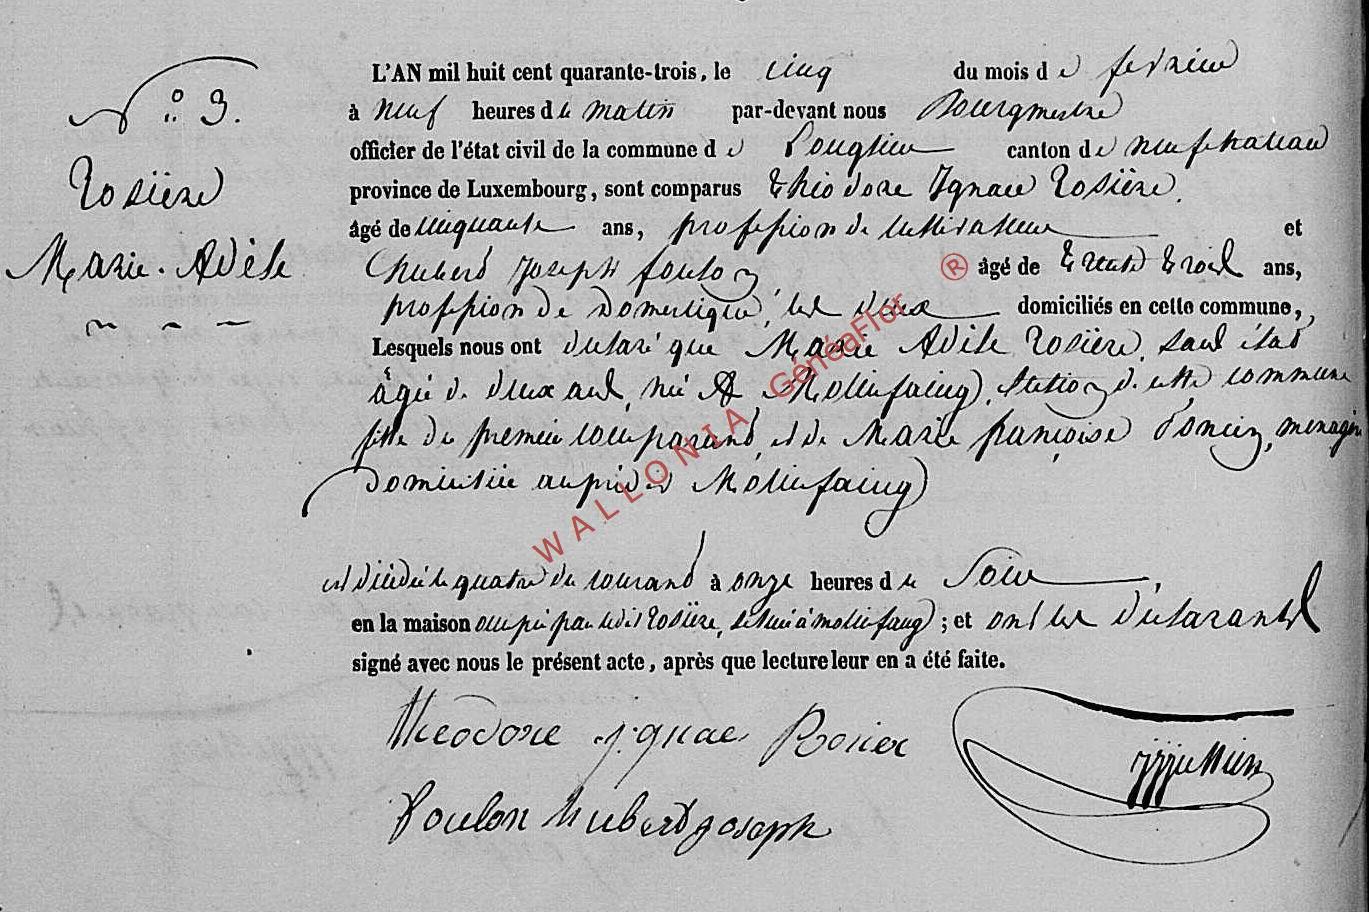 N° 3.
Rosière
Marie-Adèle
~ ~ —
L'AN mil huit cent quarante-trois, le cinq du mois de fevrier
à neuf heures du matin par-devant nous Bourgmestre
officier de l'état civil de la commune de Longlier canton de neufchateau
province de Luxembourg, sont comparus théodore Ignace Rosière,
âgé de cinquante ans, profession de cultivateur et
hubert Joseph foulon âgé de trente trois ans,
profession de Domestique, les deux domiciliés en cette commune,
Lesquels nous ont déclaré que Marie Adèle Rosière, sans état
âgée de deux ans, née à Mollefaing, section de cette commune
fille du premier comparant, et de Marie françoise Poncin, menagère
domiciliée auprès Mollefaing
est décédée le quatre du courant à onze heures du Soir,
en la maison occupée par ledit Rosière, située à mollefaing ; et ont les déclarants
signé avec nous le présent acte, après que lecture leur en a été faite.
théodore ignace Rosier
foulon hubert joseph
WALLONIA GénéaFlor ®